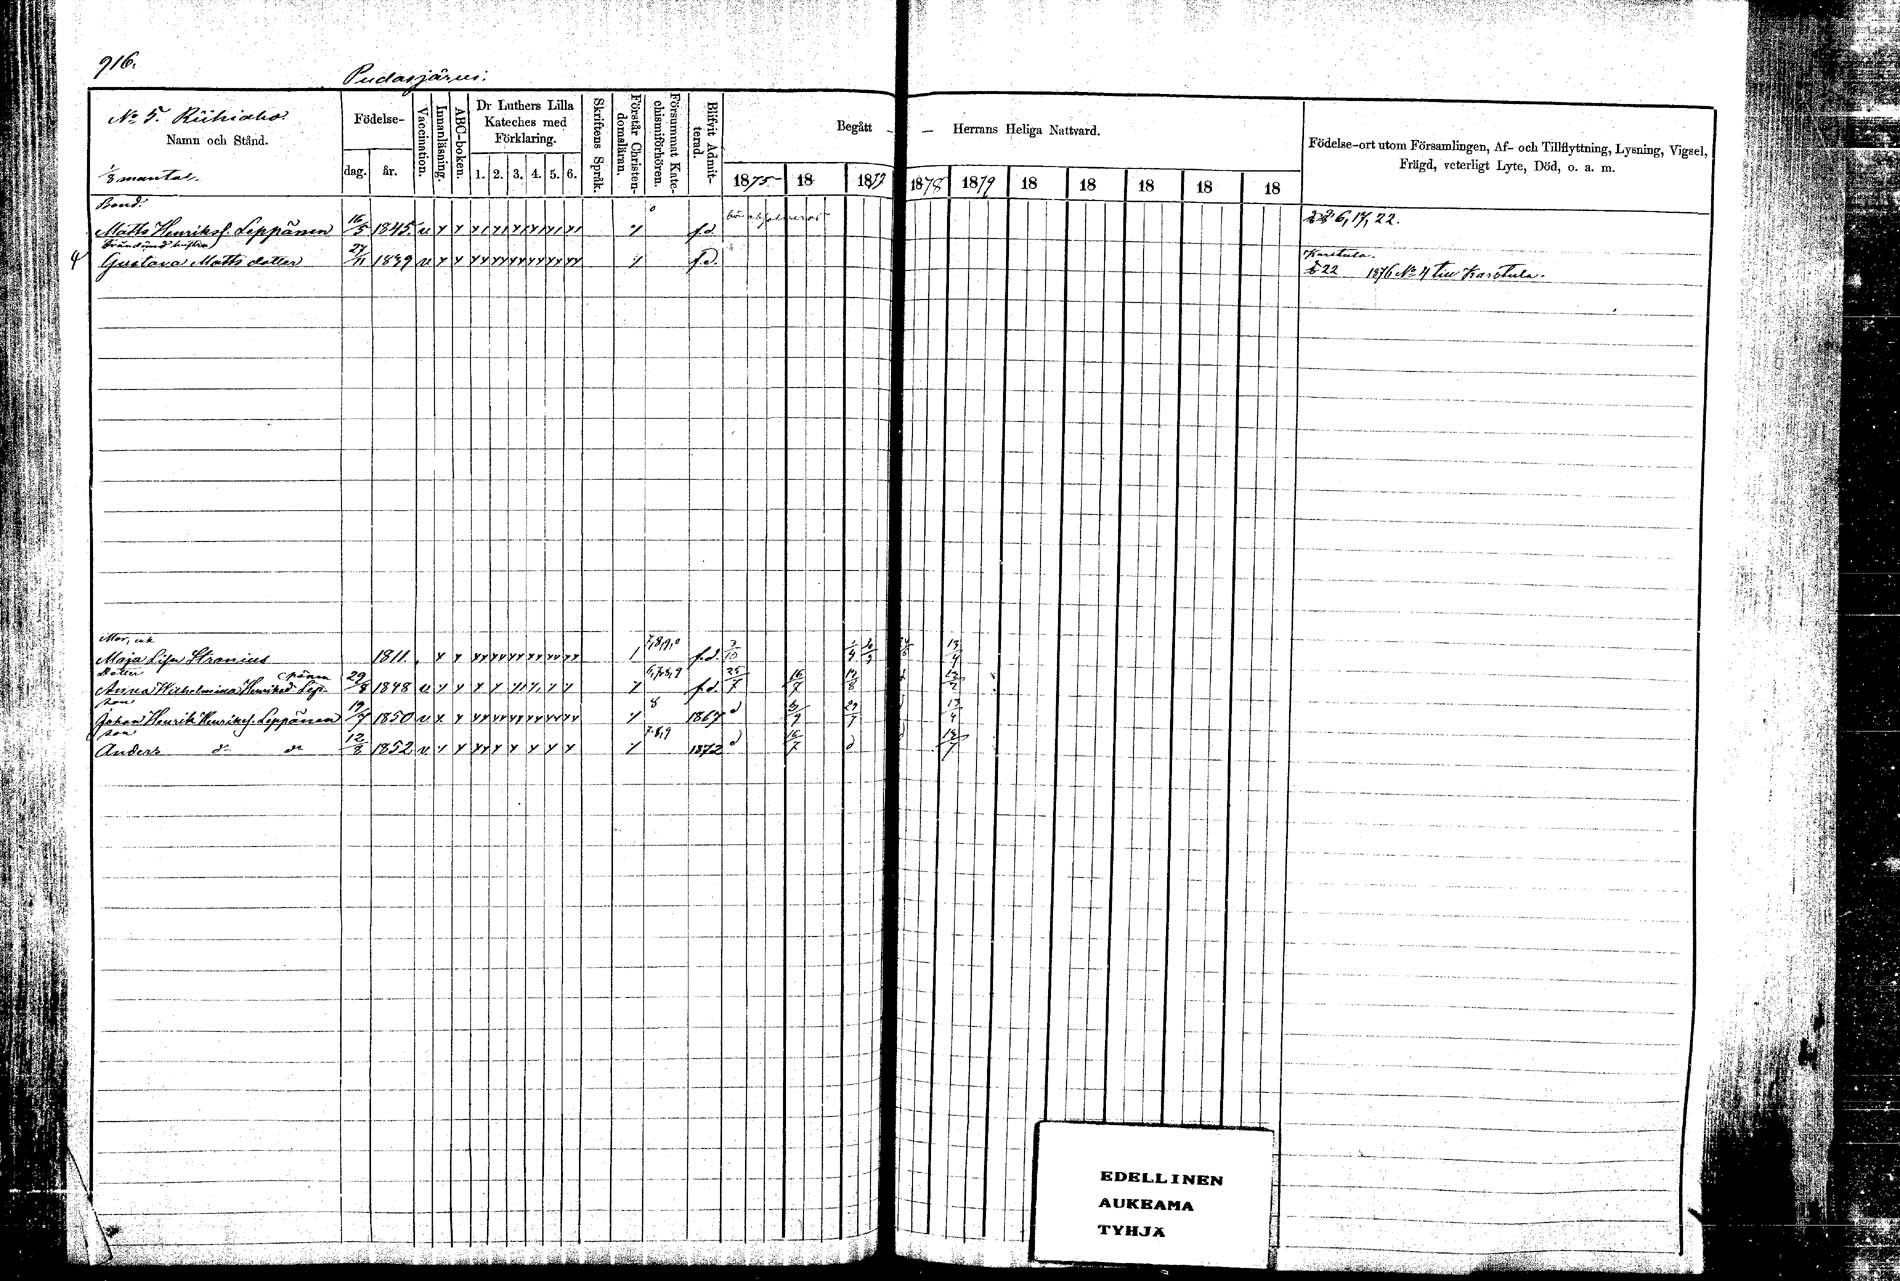 916.
Pudasjärvi.
No 5. Riihiaho
Namn och Stånd.
1/3 mantal.
Födelse-
dag. år.
Vaccination.
Innanläsning.
ABC-boken.
Dr Luthers Lilla
Kateches med
Förklaring.
1. 2. 3. 4. 5. 6.
Skriftens Språk.
Förstår Christen-
domsläran.
Försummat Kate-
chismiförhören.
Blifvit Admit-
terad.
Begått — — Herrans Heliga Nattvard.
1875 18 1877 1878 1879 18 18 18 18 18
Födelse-ort utom Församlingen, Af- och Tillflyttning, Lysning, Vigsel,
Frägd, veterligt Lyte, Död, o. a. m.
Bond.
Matts Henrikss. Leppänen 16/5 1845. f.d. 6, 17, 22.
Karstula.
Gustava Matts dotter 27/11 1839 f.d. 22 1876 No 4 till Karstula.
Mor, enk
Maja Lisa Stranius 1811. 7,8,9,0 f.d. 3/10 13/4
Dotter
Anna Wilhelmina Henriksd. Lep-
pänen 29/8 1848 6,7,8,9 f.d. 25/7 16/7 12/8
son
Johan Henrik Henrikss. Leppänen 19/7 1850 8 1867 d 29/7 13/4
son
Anders d:o d:o 12/8 1852 7,8,9 1872 d 16/7 d
EDELLINEN
AUKEAMA
TYHJÄ